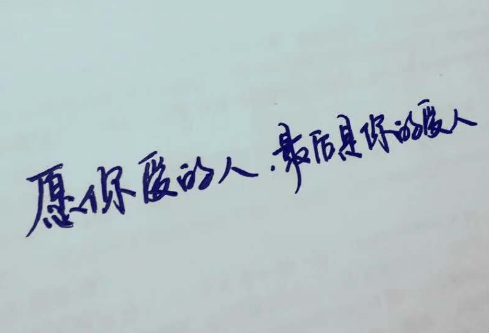 愿你爱的人,最后是你的爱人